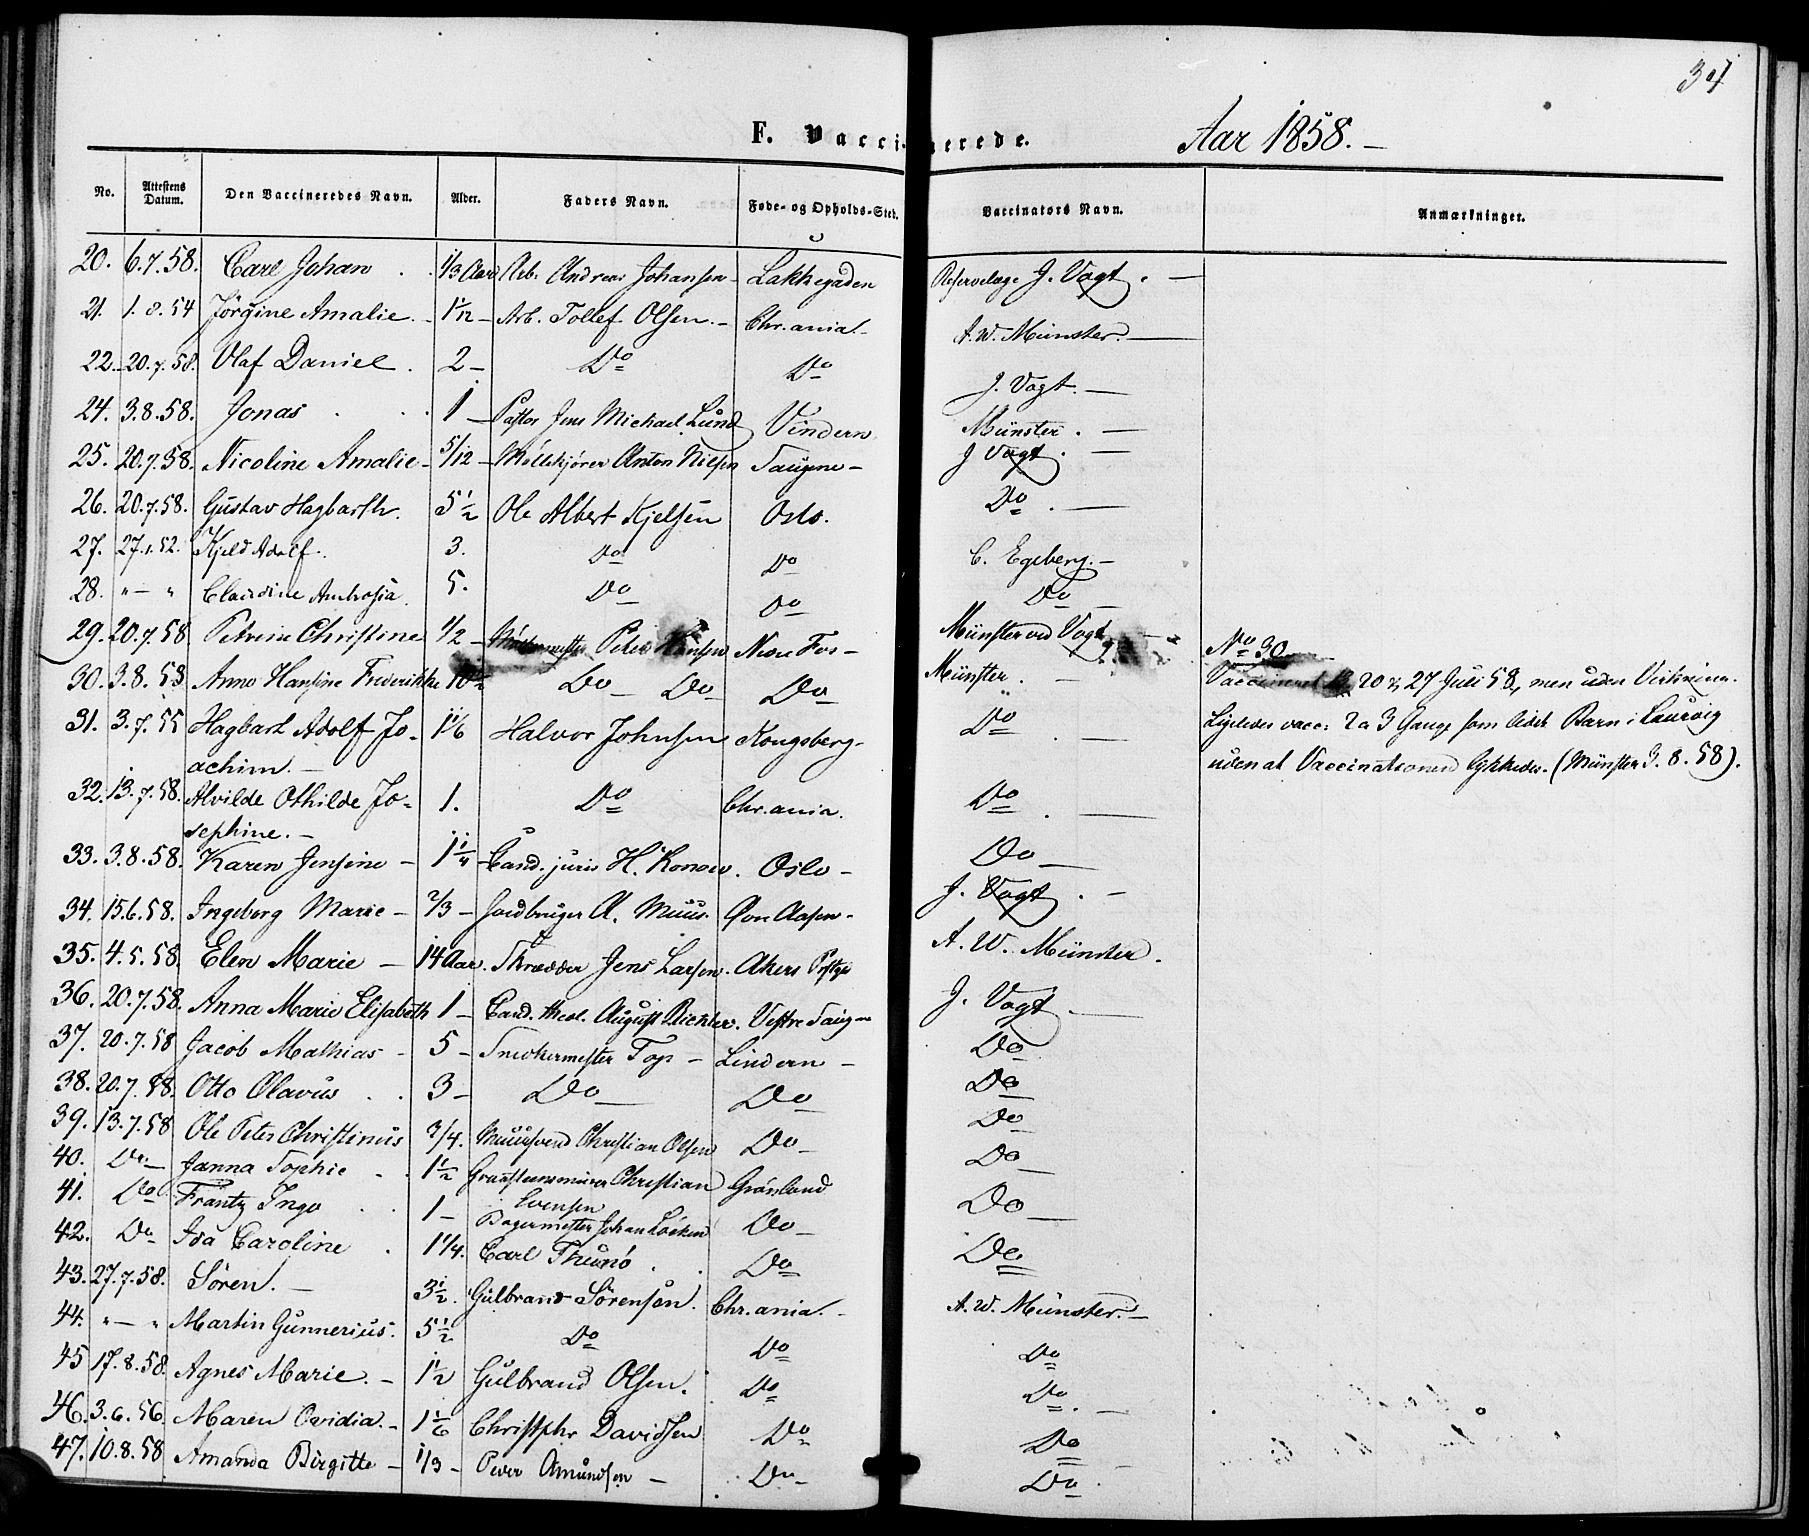 34
F. Vaccinerede. Aar 1858.
No. Attestens Datum. Den Vaccineredes Navn. Alder. Faders Navn. Føde- og Opholds-Sted. Vaccinators Navn. Anmærkninger.
20. 6.7.58. Carl Johan 1/3 Aar Arb. Andreas Johansen Lakkegaden Reservelæge J. Vogt.
21. 1.8.54 Jörgine Amalie. 1 1/12 Arb. Tollef Olsen. Chr.ania. A.W. Münster.
22. 20.7.58. Olaf Daniel. 2 Do Do J. Vogt.
24. 3.8.58. Jonas 1 Pastor Jens Michael Lund Vindern Münster.
25. 20.7.58. Nicoline Amalie 5/12 Möllekjörer Anton Nilsen Saugene J Vogt.
26. 20.7.58. Gustav Hagbarth. 5 1/2 Ole Albert Kjelsen Oslo. Do
27. 27.1.52. Kjeld Adolf. 3. Do Do C. Egeberg.
28. "—" Claudine Ambrosia 5. Do Do Do
29. 20.7.58 Petrine Christine 1/2 Peter Hansen Nedre Fos Münster ved Vogt No 30
30. 3.8.58 Anne Hansine Frederikke 10 1/2 Do Do Do Münster. Vaccineret 20 & 27 Juli 58, men uden Virkning.
31. 3.7.55 Hagbart Adolf Jo- 1 1/6 Halvor Johnsen Kongsberg. Do Ligeledes vacc: 2 a 3 Gange som lidet Barn i Laurvig
achim. uden at Vaccinationen lykkedes. (Münster 3.8.58).
32. 13.7.58. Alvilde Othilde Jo- 1. Do Chr.ania. Do
sephine.
33. 3.8.58. Karen Jensine 1 1/4 Cand. juris H. Konow. Oslo Do
34. 15.6.58. Ingeborg Marie 2/3 Jordbruger A. Muus. Aasen J. Vogt.
35. 4.5.58. Elen Marie 14 Aar. Skrædder Jens Larsen. Akers Prstgd A. W. Münster.
36. 20.7.58. Anna Marie Elisabeth 1 Cand. theol. August Richter. Vestre J. Vogt.
37. 20.7.58 Jacob Mathias 5 Snedkermester Top Lindern Do
38. 20.7.58. Otto Olavus 3 Do Do Do
39. 13.7.58 Ole Peter Christinus 3/4. Muursvend Christian Olsen Do Do
40. Do Janna Sophie 1 1/2 Christian Grönland Do
Evensen
41. Do Frantz Ingo 1 Bagermester Johan Löken Do Do
42. Do Ida Caroline 1 1/4. Carl Thunö Do Do
43. 27.7.58. Sören. 3 1/2. Gulbrand Sörensen. Chr.ania. A.W. Münster.
44. "—" Martin Gunnerius. 5 1/2 Do Do Do
45 17.8.58. Agnes Marie. 1 1/2 Gulbrand Olsen. Do Do
46. 3.6.56. Maren Ovidia. 1 1/6 Christphr Davidsen Do Do
47. 10.8.58 Amanda Birgitte 1/3 Peder Amundsen Do Do